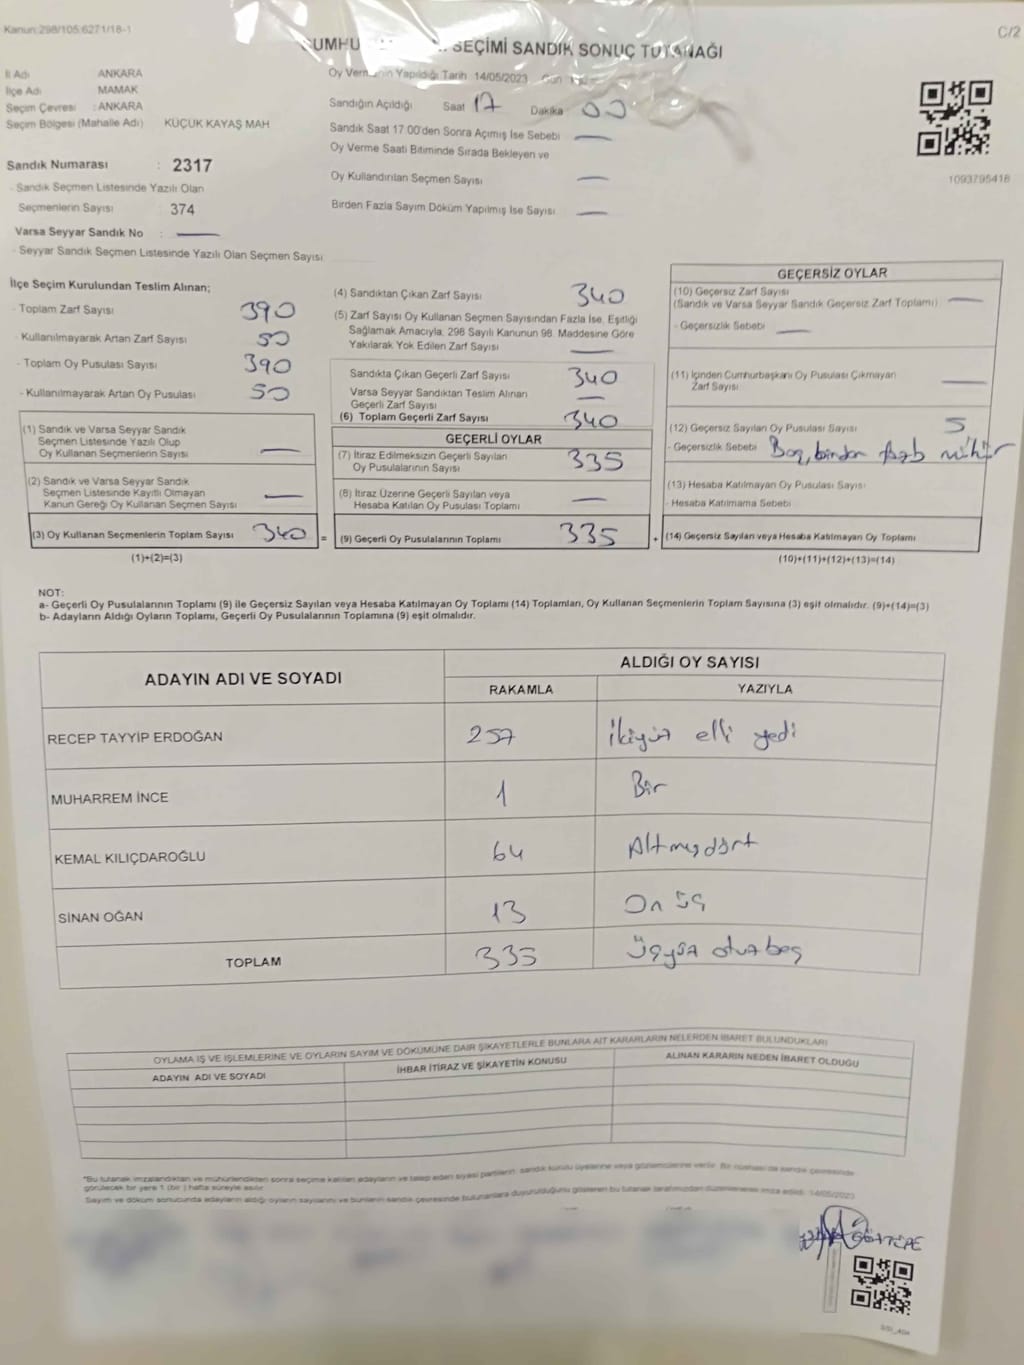 Kanun:298/105:6271/18-1
C/2
SEÇİMİ SANDIK SONUÇ TUTANAĞI
İl Adı ANKARA
İlçe Adı MAMAK
Seçim Çevresi : ANKARA
Seçim Bölgesi (Mahalle Adı) KÜÇÜK KAYAŞ MAH
Sandık Numarası : 2317
- Sandık Seçmen Listesinde Yazılı Olan
Seçmenlerin Sayısı : 374
Varsa Seyyar Sandık No :
- Seyyar Sandık Seçmen Listesinde Yazılı Olan Seçmen Sayısı
Yapıldığı Tarih 14/05/2023
Sandığın Açıldığı Saat 17 Dakika : 00
Sandık Saat 17.00'den Sonra Açımış İse Sebebi
Oy Verme Saati Bitiminde Sırada Bekleyen ve
Oy Kullandırılan Seçmen Sayısı
Birden Fazla Sayım Döküm Yapılmış İse Sayısı
1093795418
İlçe Seçim Kurulundan Teslim Alınan;
- Toplam Zarf Sayısı 390
- Kullanılmayarak Artan Zarf Sayısı 50
- Toplam Oy Pusulası Sayısı 390
- Kullanılmayarak Artan Oy Pusulası 50
(1) Sandık ve Varsa Seyyar Sandık
Seçmen Listesinde Yazılı Olup
Oy Kullanan Seçmenlerin Sayısı
(2) Sandık ve Varsa Seyyar Sandık
Seçmen Listesinde Kayıtlı Olmayan
Kanun Gereği Oy Kullanan Seçmen Sayısı
(3) Oy Kullanan Seçmenlerin Toplam Sayısı 340 =
(1)+(2)=(3)
(4) Sandıktan Çıkan Zarf Sayısı 340
(5) Zarf Sayısı Oy Kullanan Seçmen Sayısından Fazla İse, Eşitliği
Sağlamak Amacıyla, 298 Sayılı Kanunun 98. Maddesine Göre
Yakılarak Yok Edilen Zarf Sayısı
Sandıkta Çıkan Geçerli Zarf Sayısı 340
Varsa Seyyar Sandıktan Teslim Alınan
Geçerli Zarf Sayısı
(6) Toplam Geçerli Zarf Sayısı 340
GEÇERLİ OYLAR
(7) İtiraz Edilmeksizin Geçerli Sayılan
Oy Pusulalarının Sayısı 335
(8) İtiraz Üzerine Geçerli Sayılan veya
Hesaba Katılan Oy Pusulası Toplamı
(9) Geçerli Oy Pusulalarının Toplamı 335 +
GEÇERSİZ OYLAR
(10) Geçersiz Zarf Sayısı
(Sandık ve Varsa Seyyar Sandık Geçersiz Zarf Toplamı)
- Geçersizlik Sebebi
(11) İçinden Cumhurbaşkanı Oy Pusulası Çıkmayan
Zarf Sayısı
(12) Geçersiz Sayılan Oy Pusulası Sayısı 5
- Geçersizlik Sebebi Boş, birden fazla mühür
(13) Hesaba Katılmayan Oy Pusulası Sayısı
- Hesaba Katılmama Sebebi
(14) Geçersiz Sayılan veya Hesaba Katılmayan Oy Toplamı
(10)+(11)+(12)+(13)=(14)
NOT:
a- Geçerli Oy Pusulalarının Toplamı (9) ile Geçersiz Sayılan veya Hesaba Katılmayan Oy Toplamı (14) Toplamları, Oy Kullanan Seçmenlerin Toplam Sayısına (3) eşit olmalıdır. (9)+(14)=(3)
b- Adayların Aldığı Oyların Toplamı, Geçerli Oy Pusulalarının Toplamına (9) eşit olmalıdır.
ADAYIN ADI VE SOYADI
ALDIĞI OY SAYISI
RAKAMLA YAZIYLA
RECEP TAYYİP ERDOĞAN 257 İkiyüz elli yedi
MUHARREM İNCE 1 Bir
KEMAL KILIÇDAROĞLU 64 Altmışdört
SİNAN OĞAN 13 On üç
TOPLAM 335 Üçyüz otuz beş
OYLAMA İŞ VE İŞLEMLERİNE VE OYLARIN SAYIM VE DÖKÜMÜNE DAİR ŞİKAYETLERLE BUNLARA AİT KARARLARIN NELERDEN İBARET BULUNDUKLARI
ADAYIN ADI VE SOYADI İHBAR İTİRAZ VE ŞİKAYETİN KONUSU ALINAN KARARIN NEDEN İBARET OLDUĞU
*Bu tutanak imzalandıktan ve mühürlendikten sonra seçime katılan adayların ve talep eden siyasi partilerin sandık kurulu üyelerine veya gözlemcilerine verilir. Bir nüshası da sandık çevresinde
görülecek bir yere 1 (bir) hafta süreyle asılır.
Sayım ve döküm sonucunda adayların aldığı oyların sayılarını ve bunların sandık çevresinde bulunanlara duyurulduğunu gösteren bu tutanak tarafımızdan düzenlenerek imza edildi. 14/05/2023
GÖKTEPE